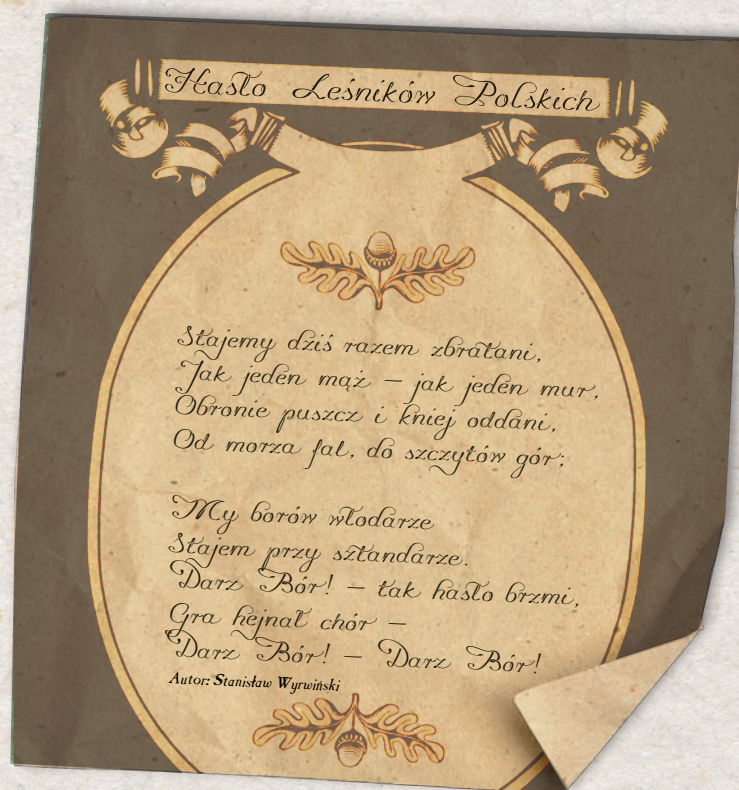 Hasło Leśników Polskich
Stajemy dziś razem zbratani,
Jak jeden mąż – jak jeden mur,
Obronie puszcz i kniej oddani,
Od morza fal, do szczytów gór;
My borów włodarze
Stajem przy sztandarze.
Darz Bór! – tak hasło brzmi,
Gra hejnał chór –
Darz Bór! – Darz Bór!
Autor: Stanisław Wyrwiński